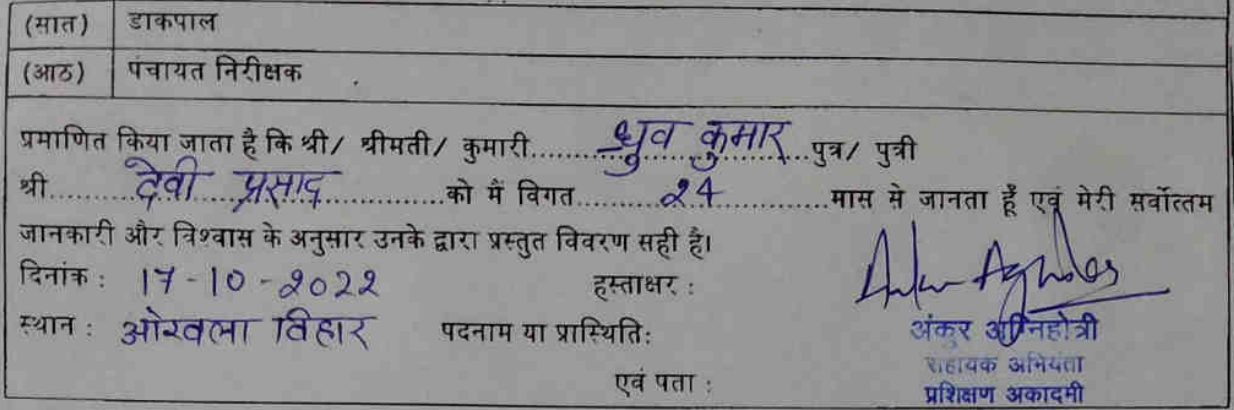 (सात) डाकपाल
(आठ) पंचायत निरीक्षक
प्रमाणित किया जाता है कि श्री/ श्रीमती/ कुमारी.....ध्रुव कुमार...पुत्र/ पुत्री
श्री.......देवी प्रसाद............को मैं विगत.........24............मास से जानता हूँ एवं मेरी सर्वोत्तम
जानकारी और विश्वास के अनुसार उनके द्वारा प्रस्तुत विवरण सही है।
दिनांक : 17-10-2022 हस्ताक्षर :
स्थान : ओखला विहार पदनाम या प्रास्थिति: अंकुर अग्निहोत्री
सहायक अभियंता
एवं पता : प्रशिक्षण अकादमी